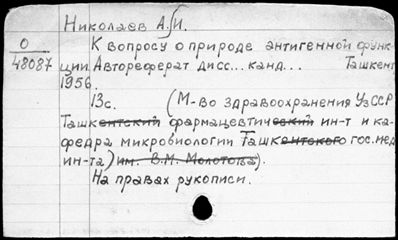 Николаев А.И.
О
48087
К вопросу о природе антигенной функ-
ции. Автореферат дисс... канд... Ташкент
1956.
13с. (М-во здравоохранения УзССР
Ташкентский фармацевтический ин-т и ка-
федра микробиологии Ташкентского гос. мед.
ин-та) им. В.М. Молотова).
На правах рукописи.